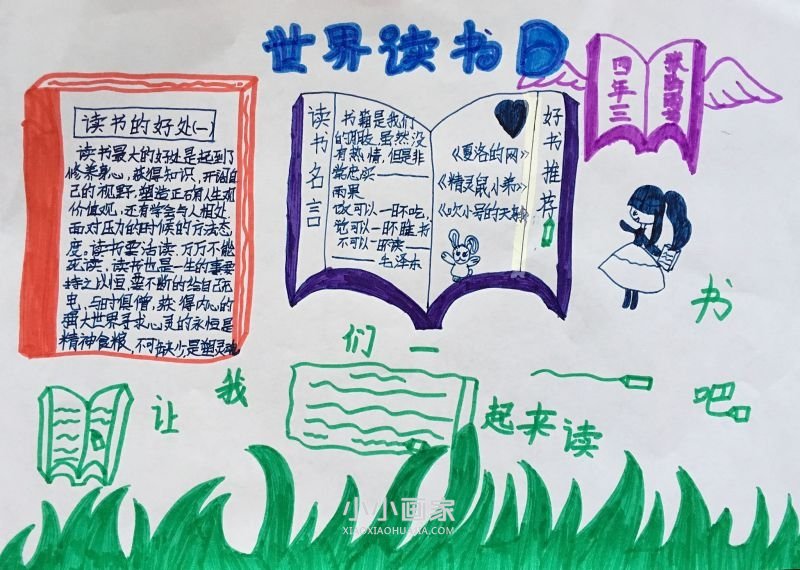 世界读书日
四年三
读书的好处(一)
读书最大的好处是起到了
修养身心,获得知识,开阔自
己的视野,塑造正确人生观
价值观,还有学会与人相处
面对压力的时候的方法态
度.读书要活读.万万不能
死读,读书也是一生的事要
持之以恒.要不断的给自己充
电,与时俱增.获得内心的
强大世界寻求心灵的永恒是
精神食粮,不可缺少,是塑灵魂
读书名言
书籍是我们
的朋友,虽然没
有热情,但是非
常忠实——
雨果
饭可以一日不吃,
觉可以一日不睡,书
不可以一日不读——
——毛泽东
《夏洛的网》
《精灵鼠小弟》
《吹小号的天鹅》
好书推荐
让我们一起来读书吧
小小画家
XIAOXIAOHUAJIA.COM